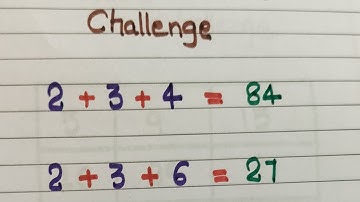 Challenge
2 + 3 + 4 = 84
2 + 3 + 6 = 27